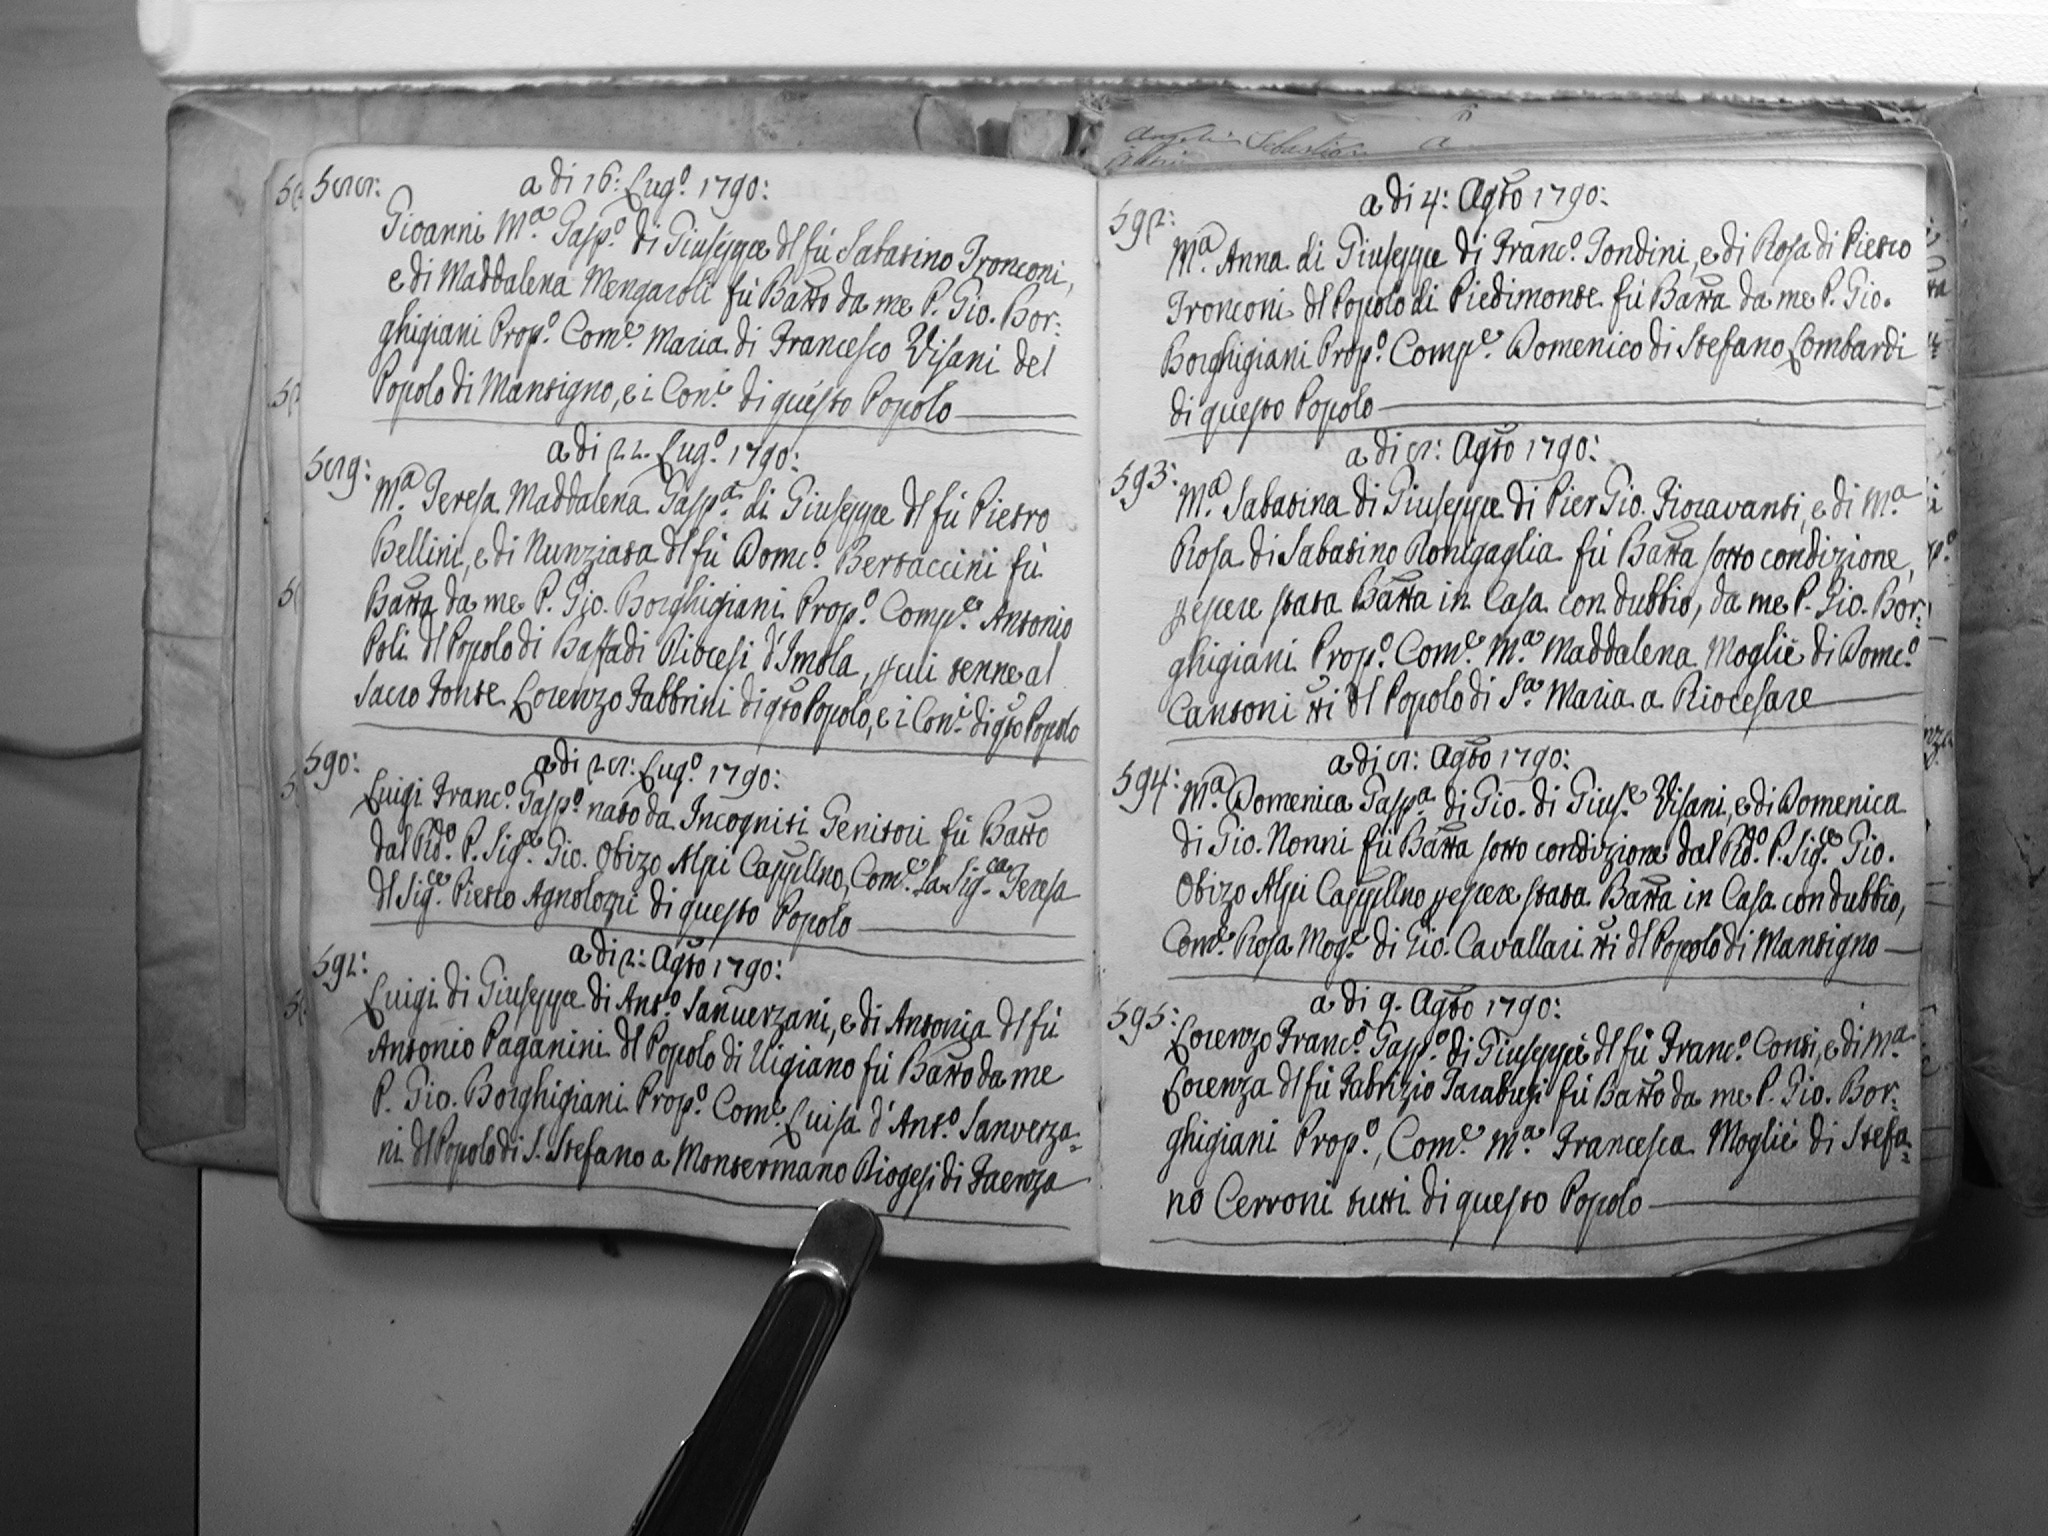 588:
a di 16: Lug.º 1790:
Gioanni M.ª Gasp.º di Giuseppe dl fù Sabatino Tronconi,
e di Maddalena Mengaroli fù Batto da me P. Gio. Bor:
ghigiani Prop.º Com.e Maria di Francesco Visani del
Popolo di Mantigno, e i Con.i di questo Popolo
589:
a di 22. Lug.º 1790:
M.ª Teresa Maddalena Gasp.ª di Giuseppe dl fù Pietro
Bellini, e di Nunziata dl fù Dom.co Bertaccini fù
Batta da me P. Gio. Borghigiani Prop.º Comp.e Antonio
Poli dl Popolo di Baffadi Diocesi d'Imola, p cui tenne al
Sacro Fonte Lorenzo Fabbrini di qto Popolo, e i Con.i di qto Popolo
590:
a di 28: Lug.º 1790:
Luigi Franc.º Gasp.º nato da Incogniti Genitori fù Batto
dal Rdo. P. Sig.e Gio. Obizo Alpi Cappllno, Com.e la Sig.ra Teresa
dl Sig.e Pietro Agnolozzi di questo Popolo
591:
a di 2: Agto 1790:
Luigi di Giuseppe di Ant.º Sanverzani, e di Antonia dl fù
Antonio Paganini dl Popolo di Vigiano fù Batto da me
P. Gio. Borghigiani Prop.º Com.e Luisa d'Ant.º Sanverza=
ni dl Popolo di S. Stefano a Montermano Diogesi di Faenza
Sebastian
592:
a di 4: Agto 1790:
M.ª Anna di Giuseppe di Franc.º Tondini, e di Rosa di Pietro
Tronconi dl Popolo di Piedimonte fù Batta da me P. Gio.
Borghigiani Prop.º Comp.e Domenico di Stefano Lombardi
di questo Popolo
593:
a di 8: Agto 1790:
M.ª Sabatina di Giuseppe di Pier Gio. Fioravanti, e di M.ª
Rosa di Sabatino Ronigaglia fù Batta sotto condizione,
p essere stata Batta in Casa con dubbio, da me P. Gio. Bor:
ghigiani Prop.º Com.e M.ª Maddalena Moglie di Dom.co
Cantoni tti dl Popolo di S.ª Maria a Riocesare
594:
a di 8: Agto 1790:
M.ª Domenica Gasp.ª di Gio. di Gius.e Visani, e di Domenica
di Gio. Nonni fù Batta sotto condizione dal Rdo. P. Sig.e Gio.
Obizo Alpi Cappllno p essere stata Batta in Casa con dubbio,
Com.e Rosa Mog.e di Gio. Cavallari tti dl Popolo di Mantigno
595:
a di 9. Agto 1790:
Lorenzo Franc.º Gasp.º di Giuseppe dl fù Franc.º Conti, e di M.ª
Lorenza dl fù Fabrizio Tarabusi fù Batto da me P. Gio. Bor:
ghigiani Prop.º, Com.e M.ª Francesca Moglie di Stefa=
no Cerroni tutti di questo Popolo